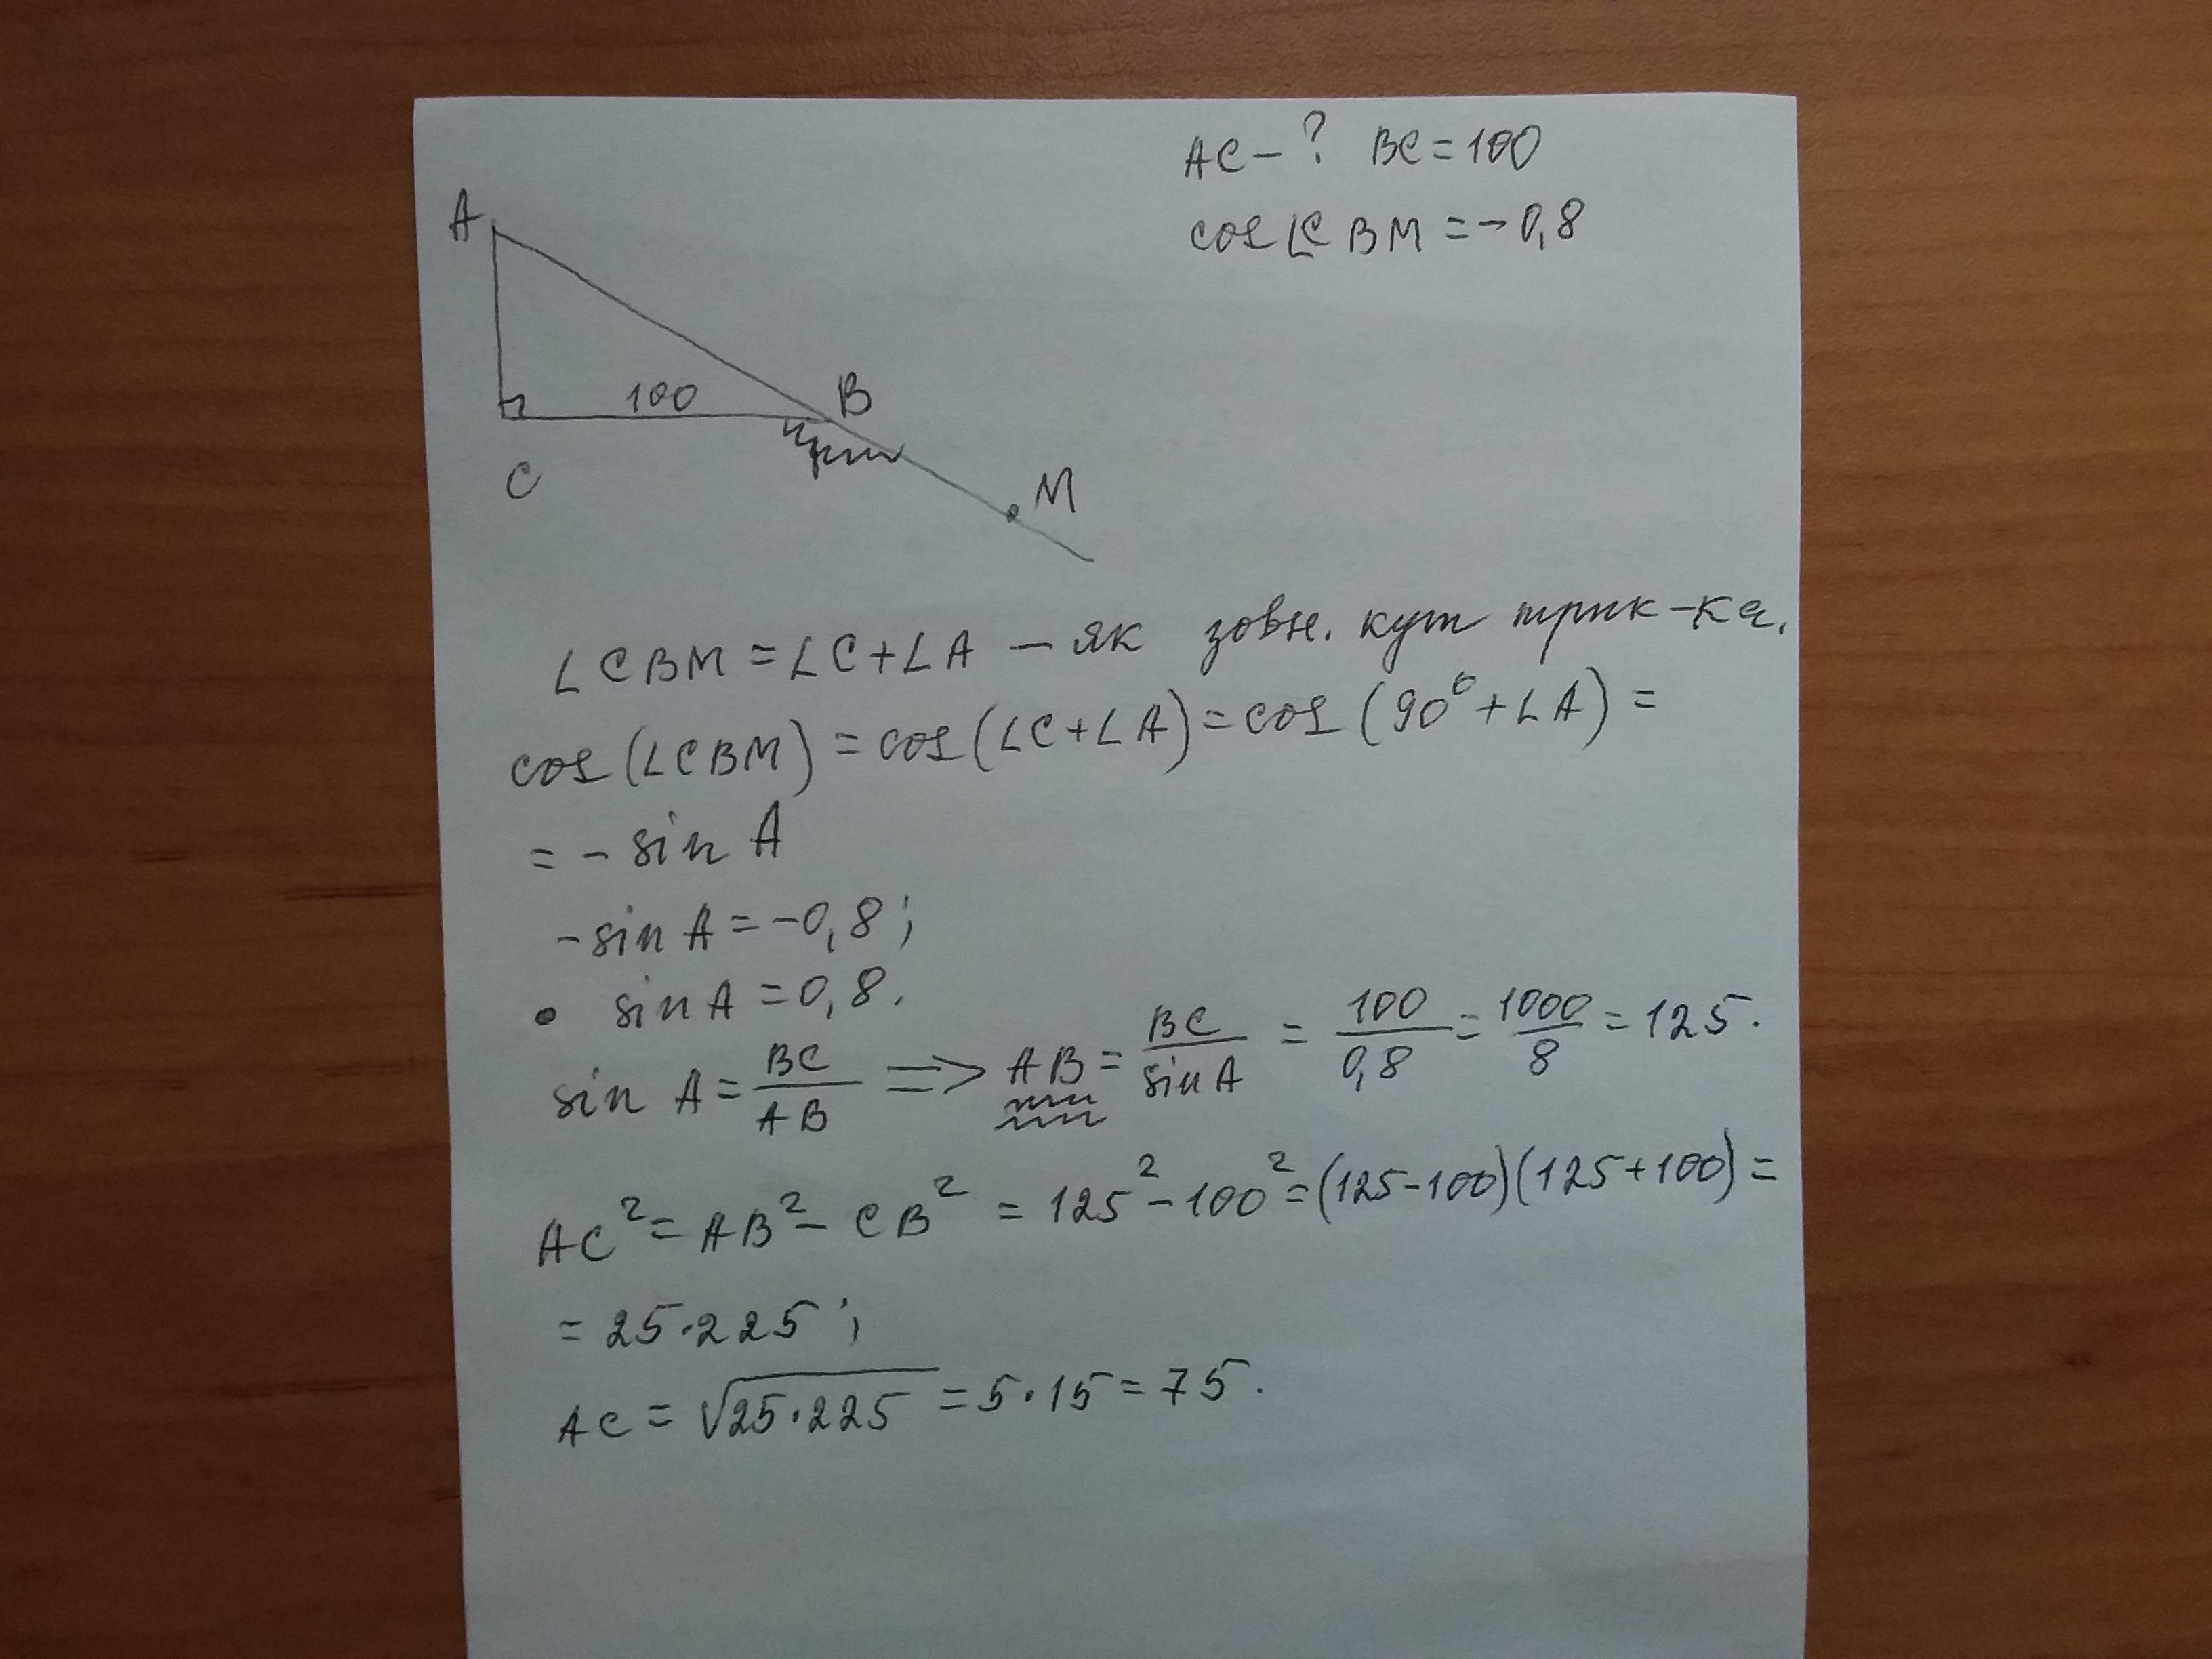 AC - ? BC = 100
cos ∠CBM = -0,8
A
100
B
C
M
∠CBM = ∠C + ∠A - як зовн. кут трик-ка.
cos(∠CBM) = cos(∠C + ∠A) = cos(90° + ∠A) =
= - sin A
- sin A = -0,8;
• sin A = 0,8.
sin A = BC/AB => AB = BC/sin A = 100/0,8 = 1000/8 = 125.
AC² = AB² - CB² = 125² - 100² = (125-100)(125+100) =
= 25·225;
AC = √25·225 = 5·15 = 75.